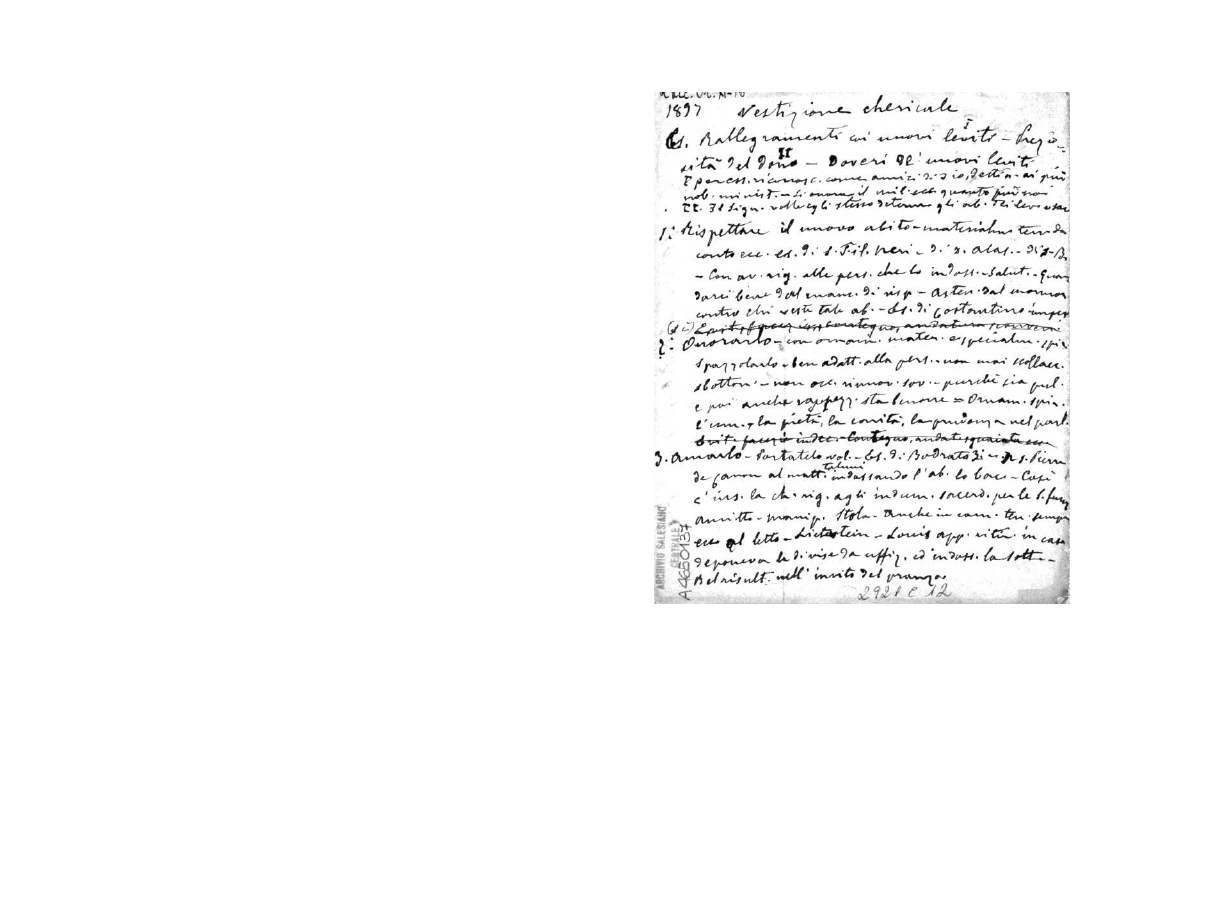 1897 Vestizione chericale
Es. Rallegramenti coi nuovi leviti - Prezio-
sità del dono - Doveri de' nuovi leviti
I per ess. riconosc. come amici di Dio, destin. ai più
nob. minist. - Si onora il mil. ecc. quanto più noi
II. Il Sign. volle egli stesso determ. gli ab. dei lev. e sac
1.° Rispettare il nuovo abito - materialm tenerda
conto ecc. es. di S. Fil. Neri - di S. - di S. B.
- Con av. rig. alle pers. che lo indoss. - Salut. - Guar
darci bene dal manc. di risp - Asten. dal mormor
contro chi veste tale ab. - Es. di Costantino imper
2.° Onorarlo - con ornam. mater. e specialm. spir
spazzolarlo - ben adatt. alla pers. - non mai scollacc.
sbotton. - non occ. rinnov. sov. - purché sia pul.
e poi anche rappezz. sta benone = Ornam. spir.
l'um. + la pietà, la carità, la prudenza nel parl.
3. Amarlo - Portatelo vol. - Es. di Bodrato
de al matt. taluni indossando l'ab. lo baci - Così
c'ins. la ch. rig. agli indum. sacerd. per le S. funz
amitto - manip. Stola - Anche in cam. ten. sempr
ecc al letto - - Louis app. in casa
deponeva le divise da uffiz. ed indoss. la sott. -
Bel risult. nell'invito del pranzo
ARCHIVIO SALESIANO
CENTRALE
A4650134
2921 C 12